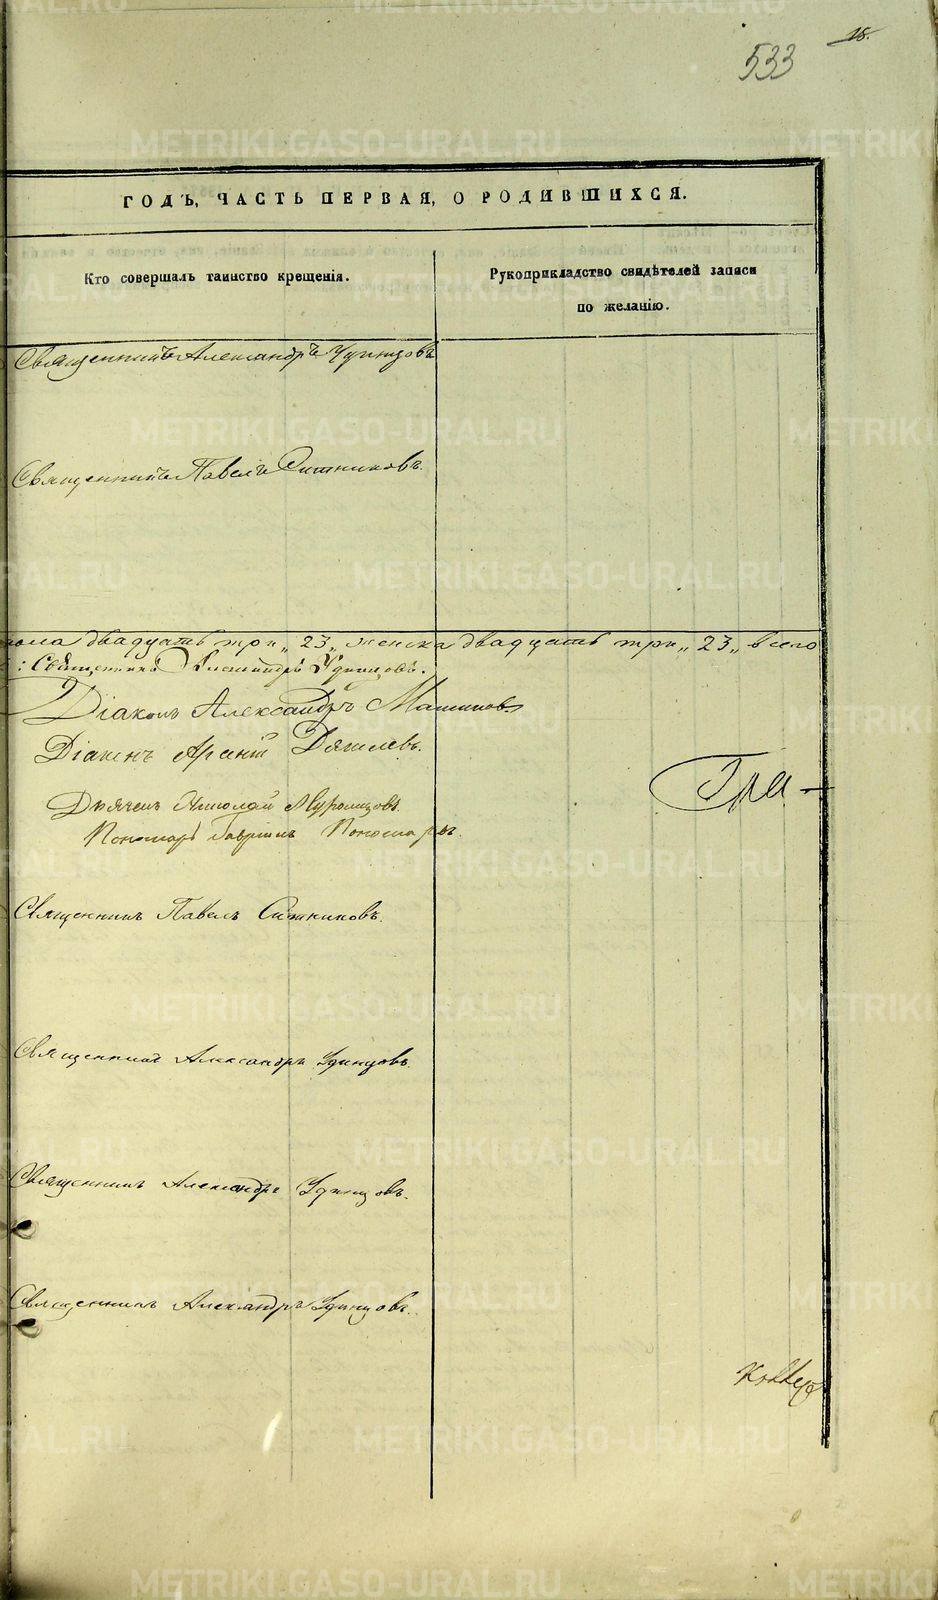 18.
533
ГОДЪ, ЧАСТЬ ПЕРВАЯ, О РОДИВШИХСЯ.
Кто совершалъ таинство крещенія.
Рукоприкладство свидѣтелей записи
по желанію.
Священникъ Александръ Удинцовъ
Священникъ Павелъ Ситниковъ.
пола двадцать три „23„ женска двадцать три „23„ всего
: Священникъ Александръ Удинцовъ.
Діаконъ Александръ
Діаконъ Арсеній
Дьячекъ Николай Муромцовъ.
Пономарь Гавріилъ Пономаревъ.
Гра-
Священникъ Павелъ Ситниковъ.
Священникъ Александръ Удинцовъ.
Священникъ Александръ Удинцовъ.
Священникъ Александръ Удинцовъ.
METRIKI.GASO-URAL.RU